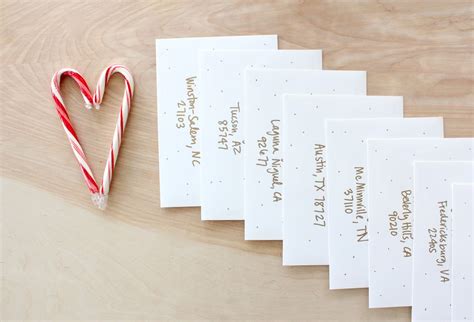 Winston-Salem, NC
27103
Tucson AZ
85747
Laguna
Niguel, CA
92677
Austin, TX 78727
Mc Minnville, TN
37110
Beverly Hills, CA
90210
Fredericksburg, VA
22405